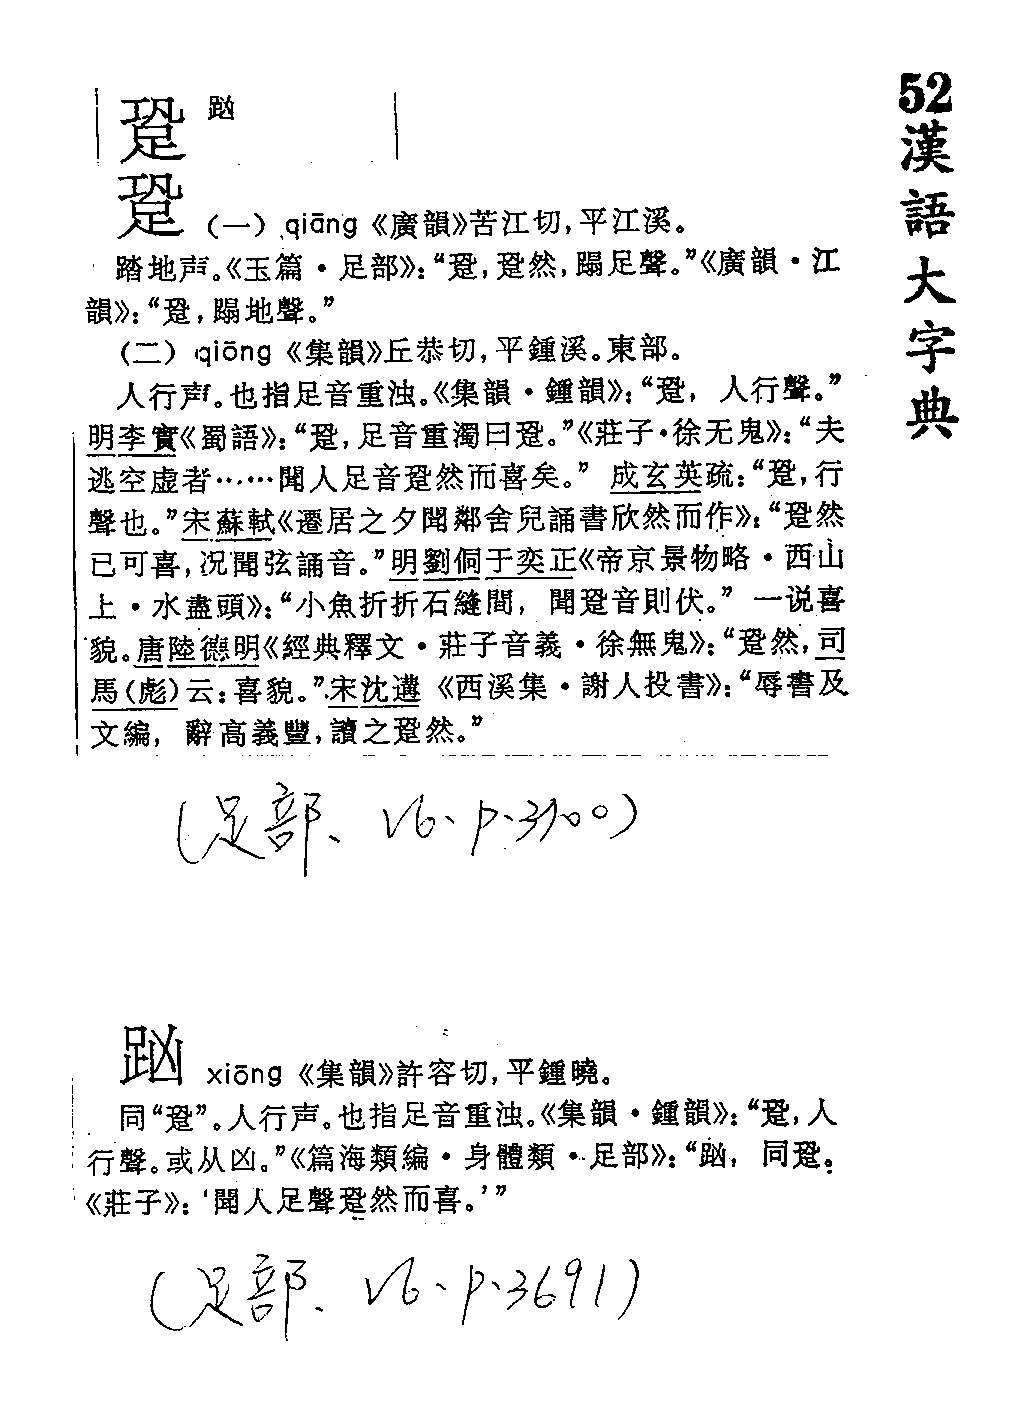 52漢語大字典
跫 𧿁
跫 (一) qiāng《廣韻》苦江切,平江溪。
踏地声。《玉篇·足部》:“跫,跫然,蹋足聲。”《廣韻·江
韻》:“跫,蹋地聲。”
(二) qiōng《集韻》丘恭切,平鍾溪。東部。
人行声。也指足音重浊。《集韻·鍾韻》:“跫,人行聲。”
明李實《蜀語》:“跫,足音重濁曰跫。”《莊子·徐无鬼》:“夫
逃空虚者……聞人足音跫然而喜矣。”成玄英疏:“跫,行
聲也。”宋蘇軾《遷居之夕聞鄰舍兒誦書欣然而作》:“跫然
已可喜,况聞弦誦音。”明劉侗于奕正《帝京景物略·西山
上·水盡頭》:“小魚折折石縫間,聞跫音則伏。”一说喜
貌。唐陸德明《經典釋文·莊子音義·徐無鬼》:“跫然,司
馬(彪)云:喜貌。”宋沈遘《西溪集·謝人投書》:“辱書及
文编,辭高義豐,讀之跫然。”
(足部、V6、P、3700)
𧿁 xiōng《集韻》許容切,平鍾曉。
同“跫”。人行声。也指足音重浊。《集韻·鍾韻》:“跫,人
行聲。或从凶。”《篇海類编·身體類·足部》:“𧿁,同跫。
《莊子》:‘聞人足聲跫然而喜。’”
(足部、V6、P、3691)